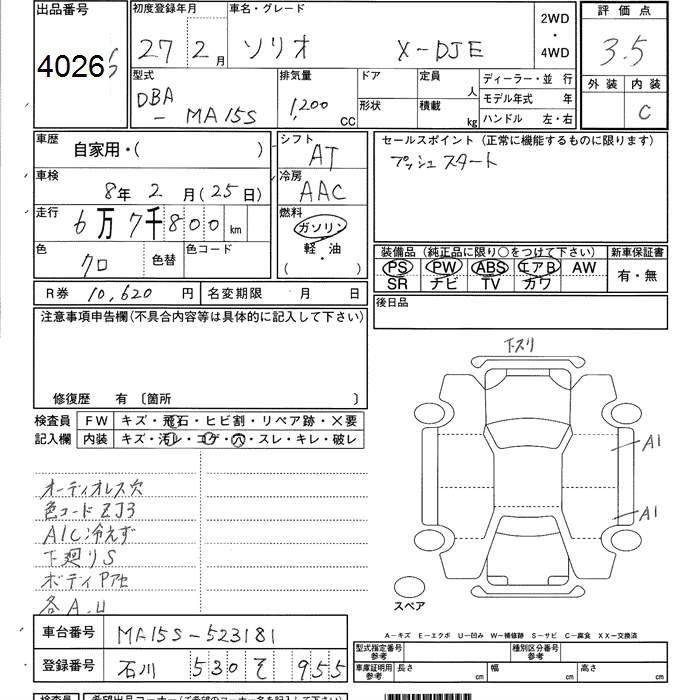 出品番号 初度登録年月 車名・グレード 2WD ・ 4WD 評価点
4026 27 2月 ソリオ X-DJE 3.5
型式 排気量 ドア 定員 人 ディーラー・並行 外装 内装
DBA - MA15S 1,200 cc 形状 積載 kg モデル年式 年 C
ハンドル 左・右
車歴 自家用・( ) シフト AT セールスポイント(正常に機能するものに限ります)
プッシュスタート
車検 8年 2月(25日) 冷房 AAC
走行 6万7千800km 燃料 ガソリン 軽・油 ( )
色 クロ 色替 色コード 装備品(純正品に限り○をつけて下さい) 新車保証書
PS PW ABS エアB AW 有・無
SR ナビ TV カワ
R券 10,620円 名変期限 月 日 後日品
注意事項申告欄(不具合内容等は具体的に記入して下さい)
下スリ
修復歴 有 〔箇所 〕
検査員 FW キズ・飛石・ヒビ割・リペア跡・×要
記入欄 内装 キズ・汚レ・コゲ・穴・スレ・キレ・破レ
A1
オーディオレス欠
色コードZJ3
A1
A/C冷えず
下廻りS
ボディPアセ
スペア
各A.U
車台番号 MA15S-523181
A-キズ E-エクボ U-凹み W-補修跡 S-サビ C-腐食 XX-交換済
型式指定番号 参考 種別区分番号 参考
登録番号 石川 530 そ 955
車庫証明用 参考 長さ 幅 高さ
検査員 希望出品コーナー(ご希望のコーナー名を記入下さい)